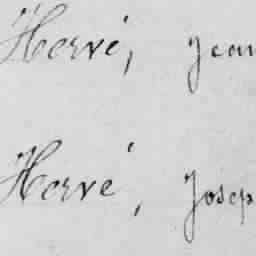 Hervé, Jean
Hervé, Josep